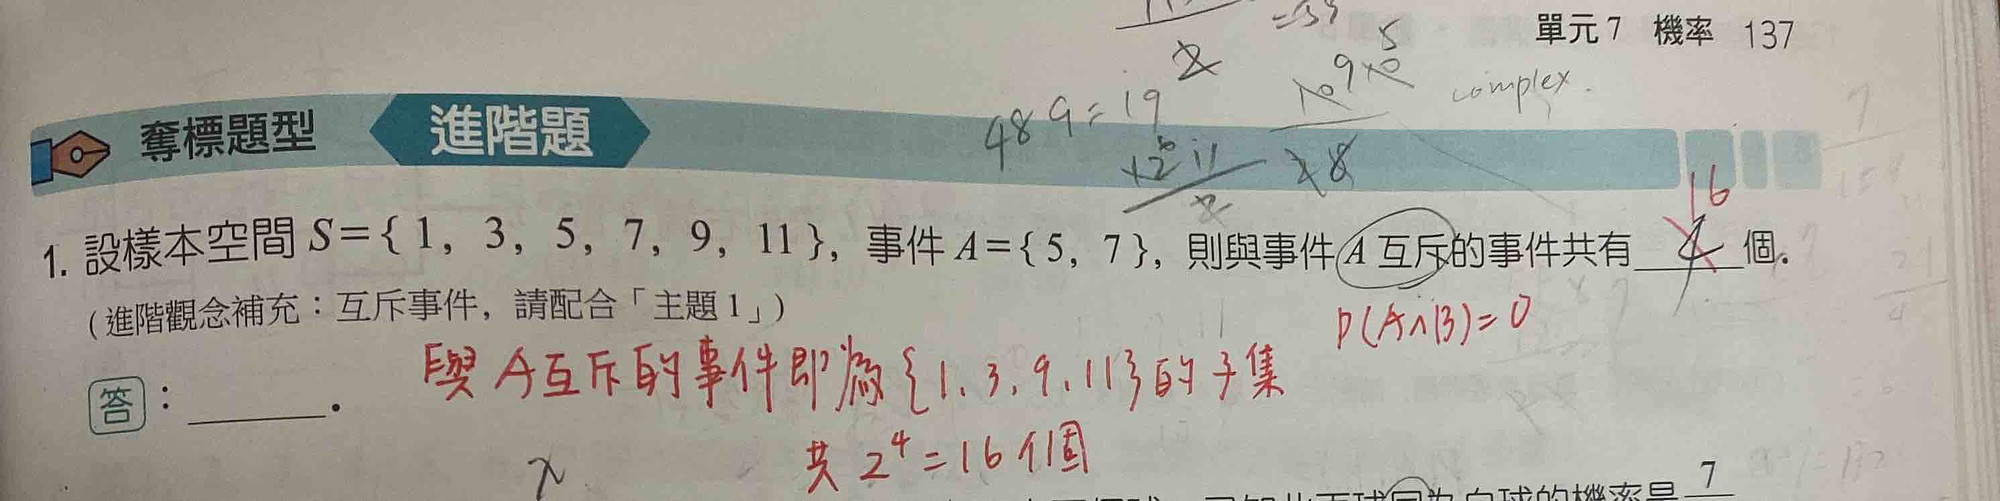 單元 7 機率 137
=
2
10 9 10 5
complex.
489=19
奪標題型 進階題
11
2
2 8
16
1. 設樣本空間 S={ 1, 3, 5, 7, 9, 11 }, 事件 A={ 5, 7 }, 則與事件 A 互斥的事件共有 4 個.
(進階觀念補充：互斥事件, 請配合「主題 1」)
P(A∩B)=0
與A互斥的事件即為{1,3,9,11}的子集
答：______.
共 2⁴=16個
7